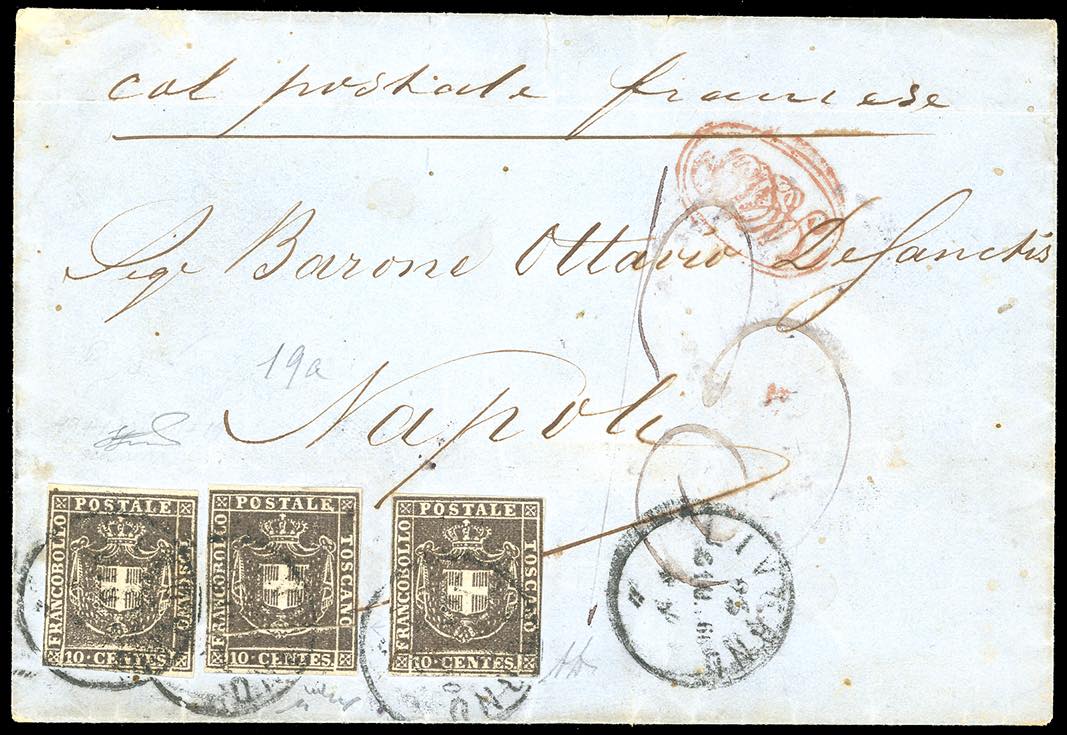 col postale francese
Sigr Barone Ottavio DeSanctis
19a
Napoli
POSTALE
FRANCOBOLLO
TOSCANO
10·CENTES
POSTALE
FRANCOBOLLO
TOSCANO
10·CENTES
POSTALE
FRANCOBOLLO
TOSCANO
10·CENTES
LIVORNO